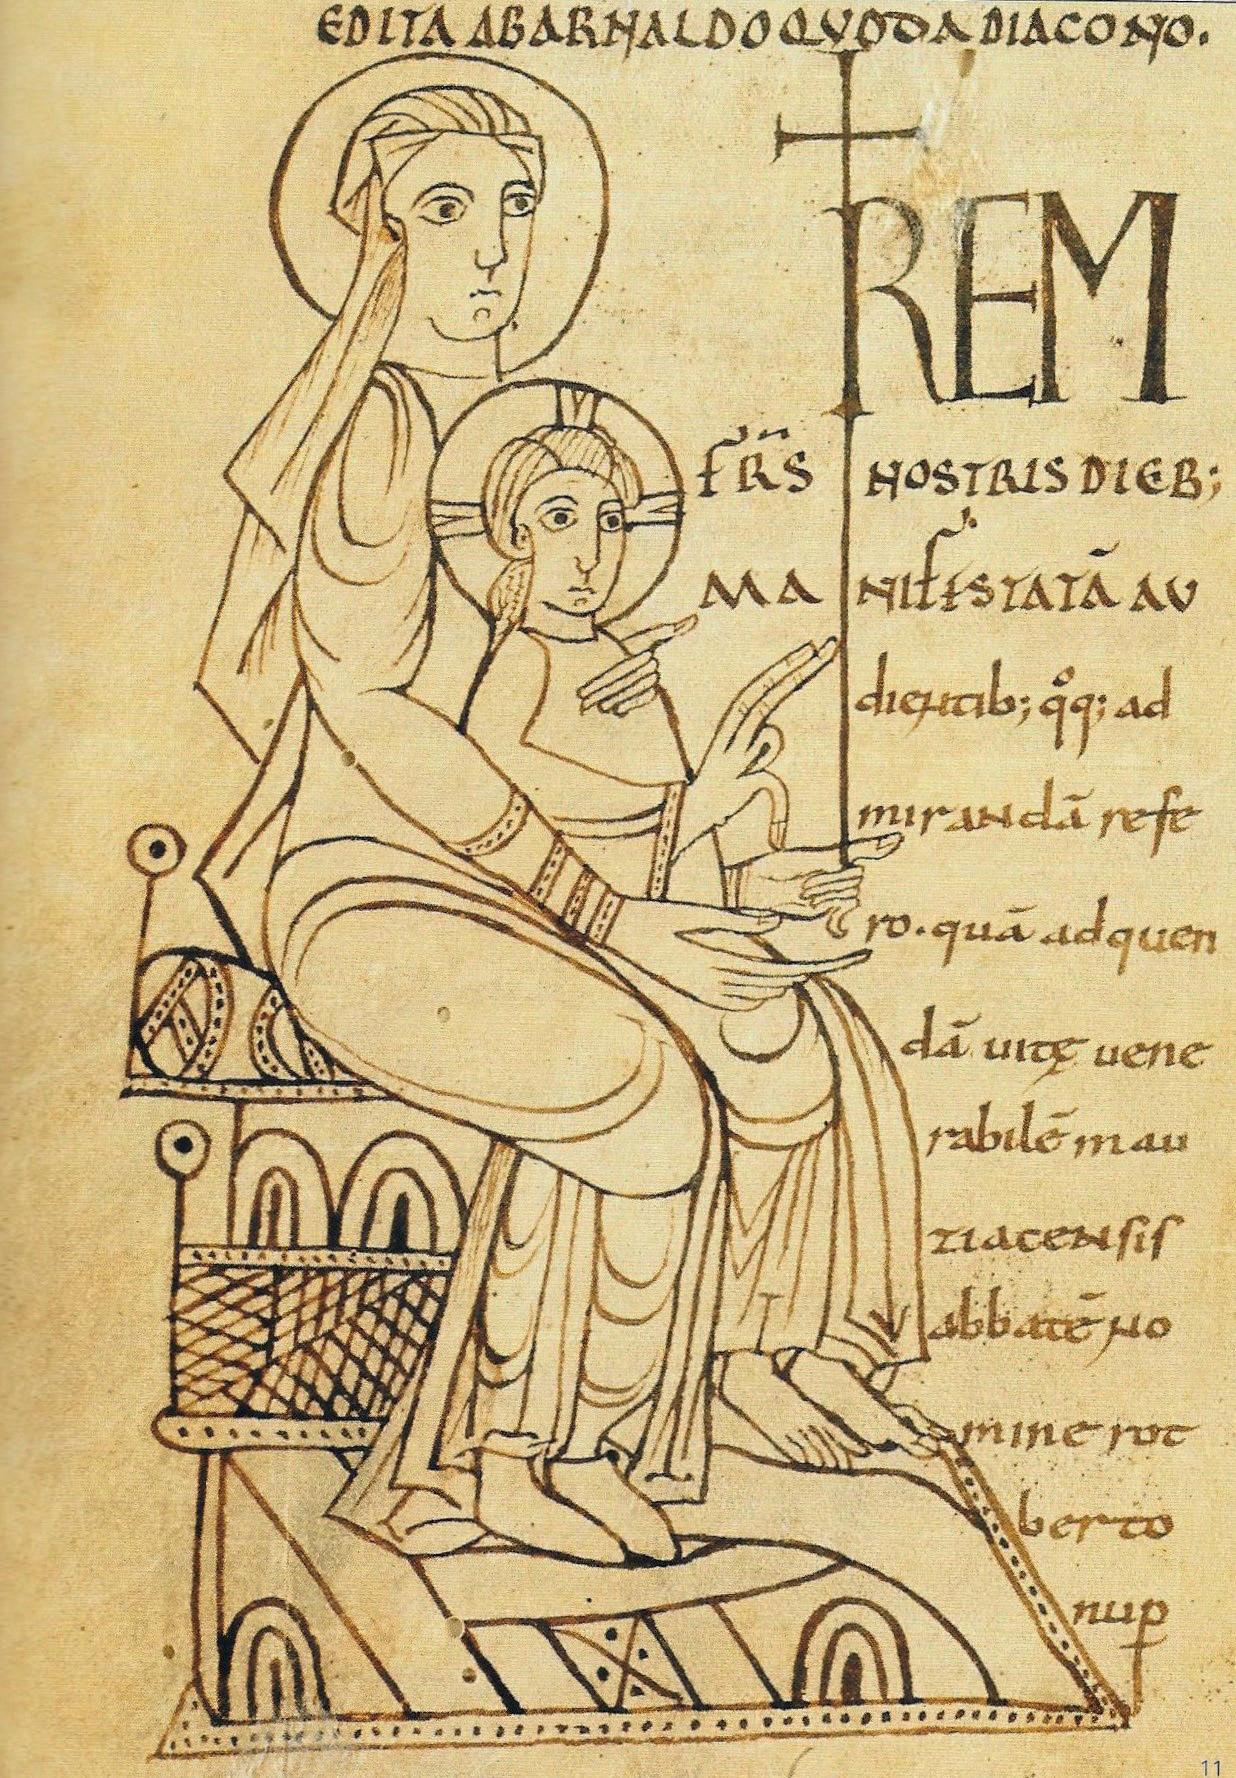 EDITA AB ARNALDO QUODĀ DIACONO.
REM
FR̄S NOSTRIS DIEB;
MANIFESTATĀ AU
dientib; q̊q; ad
mirandā refe
ro. quā ad quen
dā uitę uene
rabilē mau
ziacensis
abbatē no
mine rot
berto
nup
11